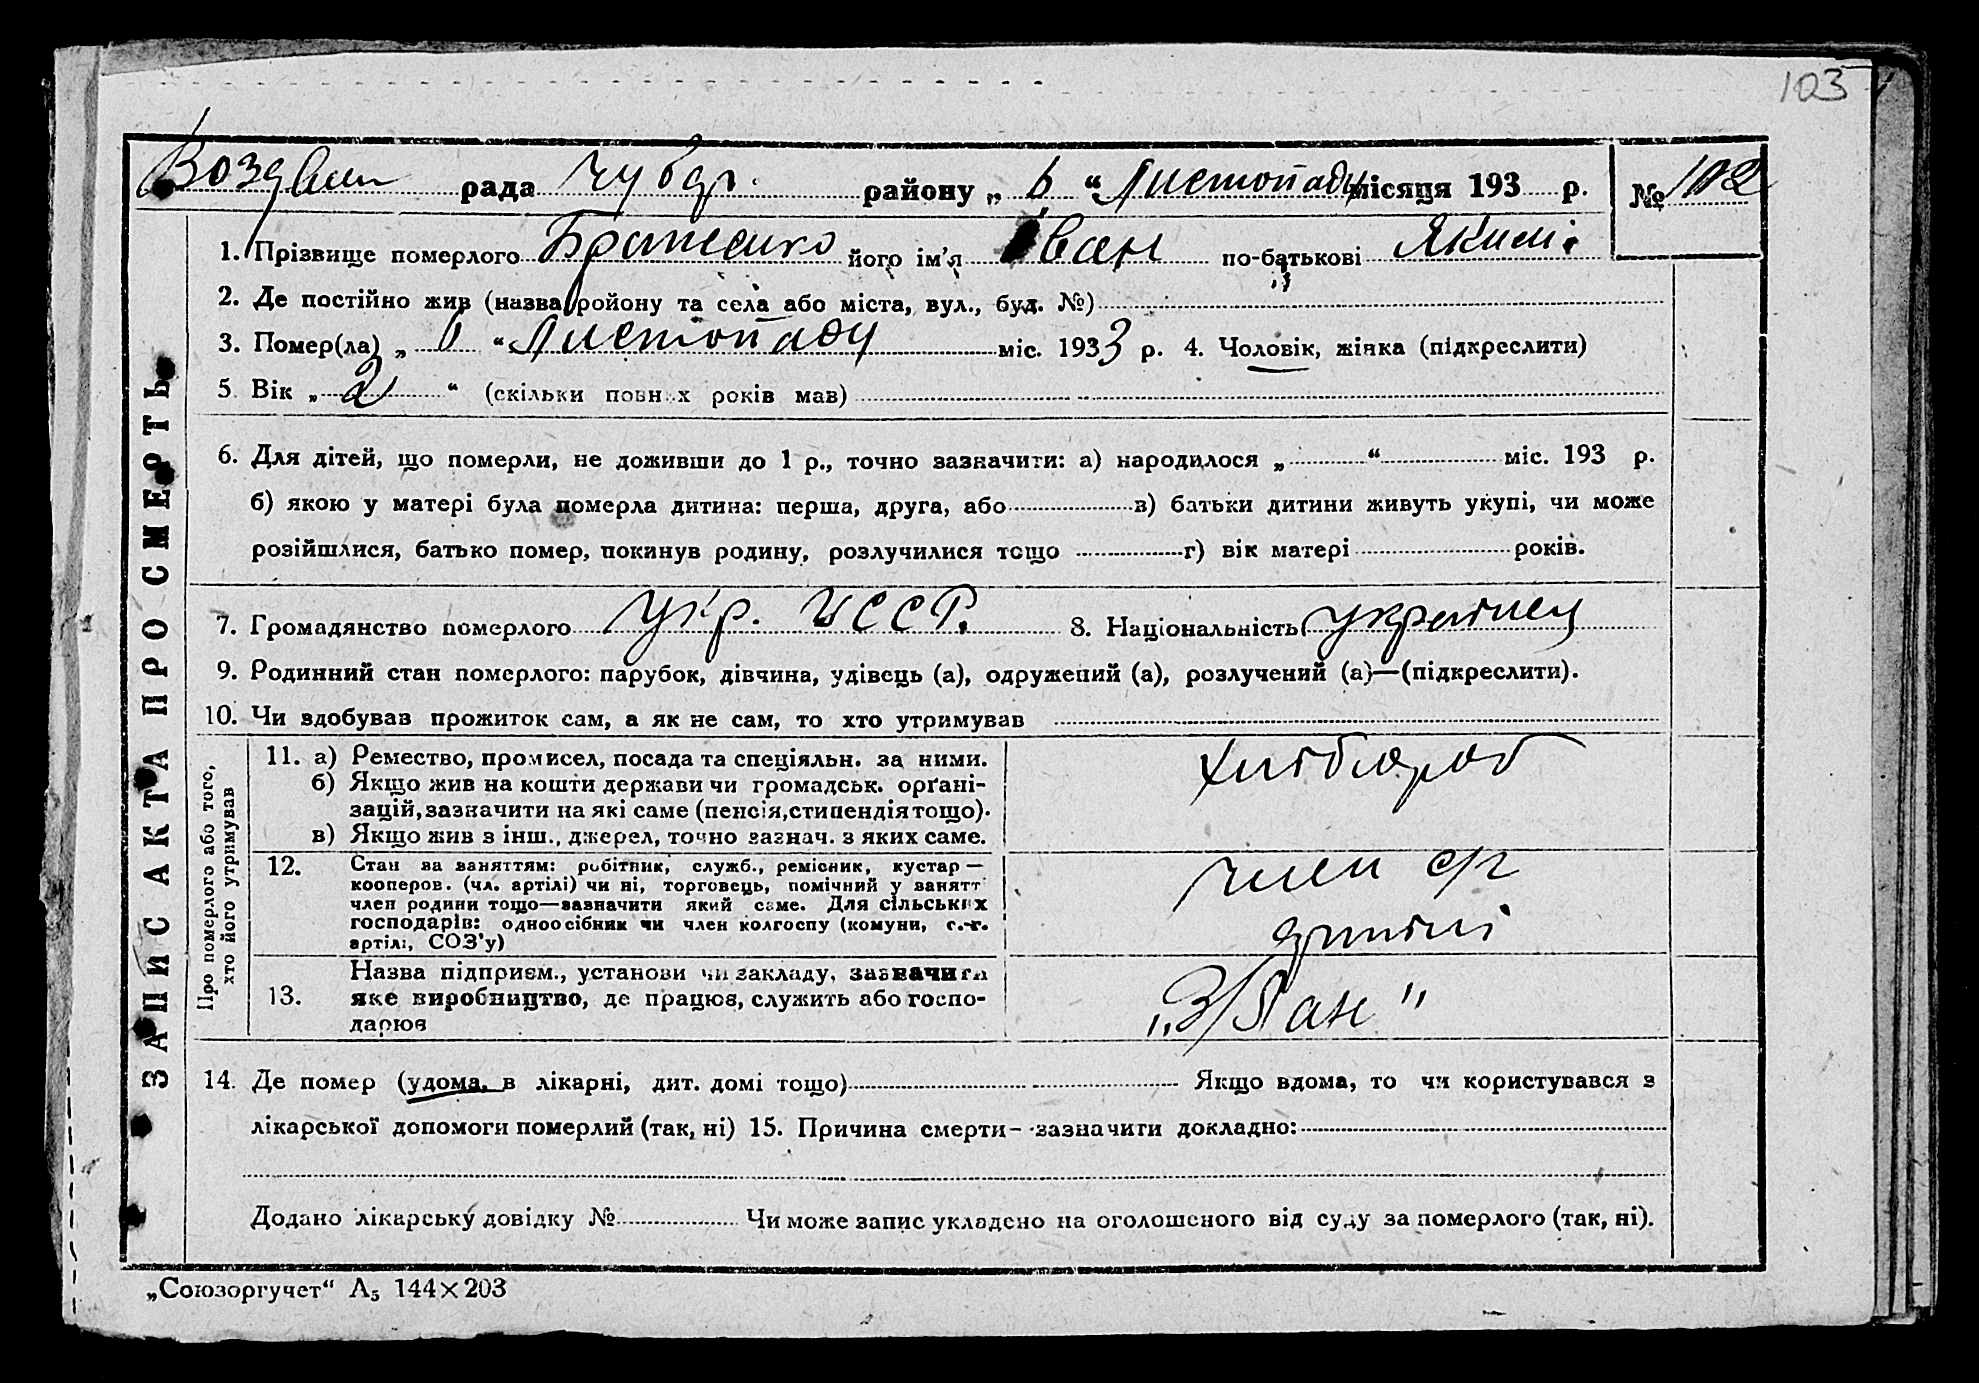 103
Воздвиж рада Чубар. району „ 6 “ Листопаду місяця 193 р. № 102
1. Прізвище померлого Браженко його ім'я Іван по-батькові Якимі
2. Де постійно жив (назва ройону та села або міста, вул., буд. №)
3. Помер(ла) „ 6 “ Листопаду міс. 1933 р. 4. Чоловік, жінка (підкреслити)
5 Вік „ 2 “ (скільки повних років мав)
6. Для дітей, що померли, не доживши до 1 р., точно зазначити: а) народилося „ “ міс. 193 р.
б) якою у матері була померла дитина: перша, друга, або в) батьки дитини живуть укупі, чи може
розійшлися, батько помер, покинув родину, розлучилися тощо г) вік матері років.
7. Громадянство померлого Укр. УССР. 8. Національність українец
9. Родинний стан померлого: парубок, дівчина, удівець (а), одружений (а), розлучений (а)—(підкреслити).
10. Чи здобував прожиток сам, а як не сам, то хто утримував
ЗАПИС АКТА ПРО СМЕРТЬ
Про померлого або того,
хто його утримував
11. а) Ремество, промисел, посада та спеціяльн. за ними.
б) Якщо жив на кошти держави чи громадськ. орґані-
зацій, зазначити на які саме (пенсія, стипендія тощо).
в) Якщо жив з інш., джерел, точно зазнач. з яких саме.
хлібороб
12. Стан за заняттям: робітник, служб., ремісник, кустар —
кооперов. (чл. артілі) чи ні, торговець, помічний у занятт
член родини тощо—зазначити який саме. Для сільських
господарів: одноосібник чи член колгоспу (комуни, с.-г.
артілі, СОЗ'у)
член с/г
артілі
13. Назва підприєм., установи чи закладу, зазначити
яке виробництво, де працює, служить або госпо-
дарює
„З/Лан"
14. Де помер (удома, в лікарні, дит. домі тощо) Якщо вдома, то чи користувався з
лікарської допомоги померлий (так, ні) 15. Причина смерти—зазначити докладно:
Додано лікарську довідку № Чи може запис укладено на оголошеного від суду за померлого (так, ні).
„Союзоргучет“ А₅ 144×203